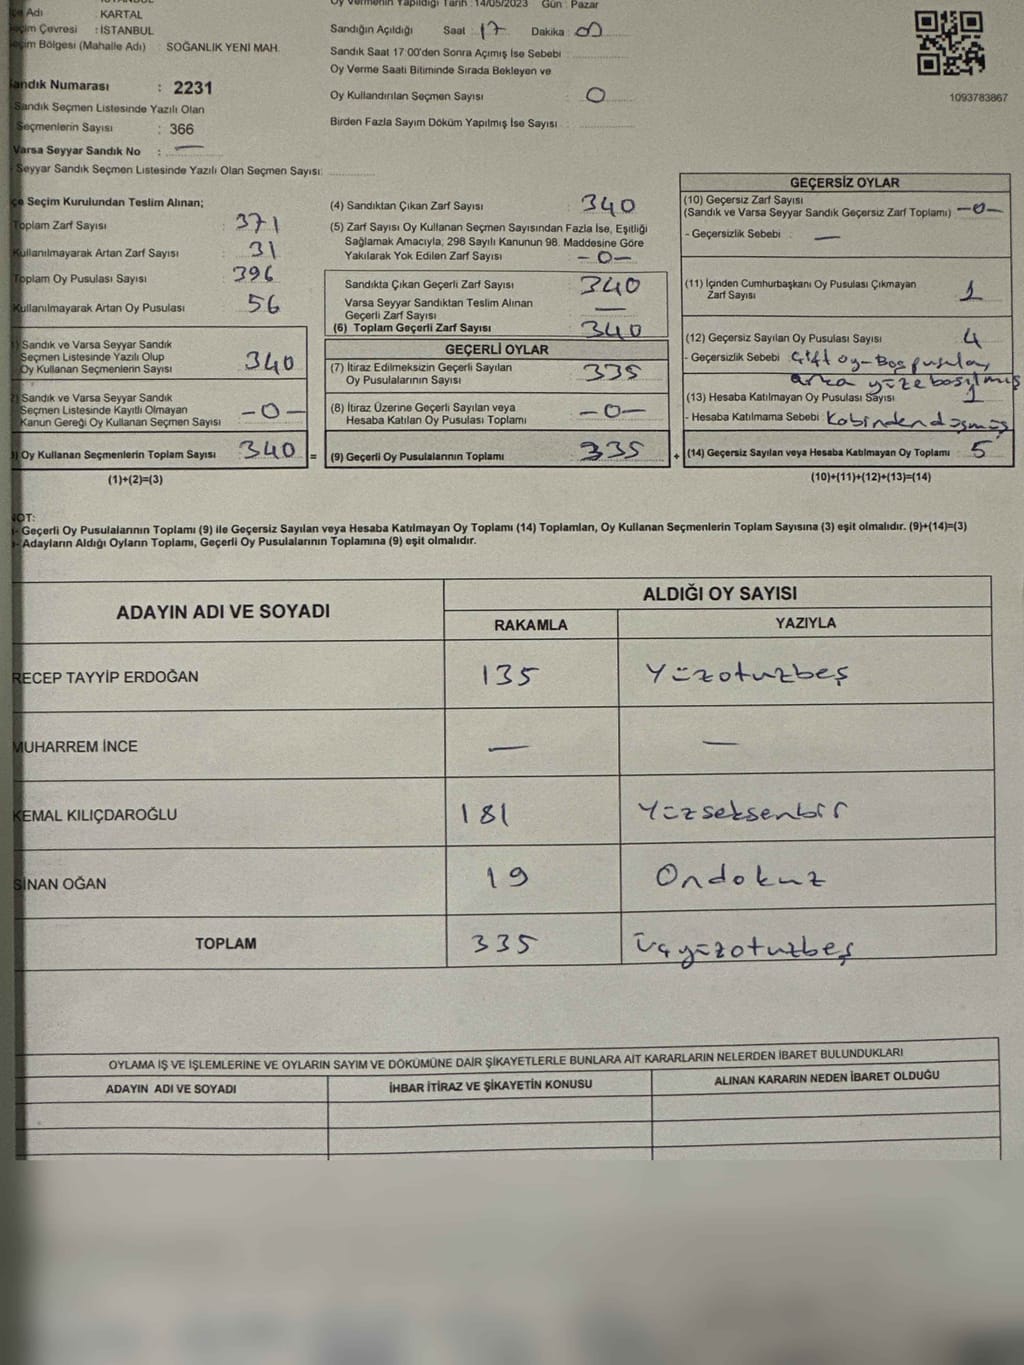 Oy Vermenin Yapıldığı Tarih : 14/05/2023 Gün : Pazar
Adı : KARTAL
Çevresi : İSTANBUL
Bölgesi (Mahalle Adı) : SOĞANLIK YENİ MAH.
Sandığın Açıldığı Saat : 17 Dakika :
Sandık Saat 17:00'den Sonra Açılmış İse Sebebi :
Oy Verme Saati Bitiminde Sırada Bekleyen ve
Oy Kullandırılan Seçmen Sayısı : 0
Birden Fazla Sayım Döküm Yapılmış İse Sayısı :
1093783867
Sandık Numarası : 2231
Sandık Seçmen Listesinde Yazılı Olan
Seçmenlerin Sayısı : 366
Varsa Seyyar Sandık No : —
Seyyar Sandık Seçmen Listesinde Yazılı Olan Seçmen Sayısı:
Seçim Kurulundan Teslim Alınan;
Toplam Zarf Sayısı : 371
Kullanılmayarak Artan Zarf Sayısı : 31
Toplam Oy Pusulası Sayısı : 396
Kullanılmayarak Artan Oy Pusulası : 56
Sandık ve Varsa Seyyar Sandık
Seçmen Listesinde Yazılı Olup
Oy Kullanan Seçmenlerin Sayısı 340
Sandık ve Varsa Seyyar Sandık
Seçmen Listesinde Kayıtlı Olmayan
Kanun Gereği Oy Kullanan Seçmen Sayısı -0-
Oy Kullanan Seçmenlerin Toplam Sayısı 340 =
(1)+(2)=(3)
(4) Sandıktan Çıkan Zarf Sayısı : 340
(5) Zarf Sayısı Oy Kullanan Seçmen Sayısından Fazla İse, Eşitliği
Sağlamak Amacıyla, 298 Sayılı Kanunun 98. Maddesine Göre
Yakılarak Yok Edilen Zarf Sayısı : -0-
Sandıkta Çıkan Geçerli Zarf Sayısı : 340
Varsa Seyyar Sandıktan Teslim Alınan
Geçerli Zarf Sayısı : —
(6) Toplam Geçerli Zarf Sayısı : 340
GEÇERLİ OYLAR
(7) İtiraz Edilmeksizin Geçerli Sayılan
Oy Pusulalarının Sayısı : 335
(8) İtiraz Üzerine Geçerli Sayılan veya
Hesaba Katılan Oy Pusulası Toplamı : -0-
(9) Geçerli Oy Pusulalarının Toplamı : 335 +
GEÇERSİZ OYLAR
(10) Geçersiz Zarf Sayısı
(Sandık ve Varsa Seyyar Sandık Geçersiz Zarf Toplamı) -0-
- Geçersizlik Sebebi : —
(11) İçinden Cumhurbaşkanı Oy Pusulası Çıkmayan
Zarf Sayısı : 1
(12) Geçersiz Sayılan Oy Pusulası Sayısı : 4
- Geçersizlik Sebebi : Çift oy-Boş pusula,
arka yüze basılmış
(13) Hesaba Katılmayan Oy Pusulası Sayısı : 1
- Hesaba Katılmama Sebebi : Kabinden düşmüş
(14) Geçersiz Sayılan veya Hesaba Katılmayan Oy Toplamı : 5
(10)+(11)+(12)+(13)=(14)
NOT:
- Geçerli Oy Pusulalarının Toplamı (9) ile Geçersiz Sayılan veya Hesaba Katılmayan Oy Toplamı (14) Toplamları, Oy Kullanan Seçmenlerin Toplam Sayısına (3) eşit olmalıdır. (9)+(14)=(3)
- Adayların Aldığı Oyların Toplamı, Geçerli Oy Pusulalarının Toplamına (9) eşit olmalıdır.
ADAYIN ADI VE SOYADI ALDIĞI OY SAYISI
RAKAMLA YAZIYLA
RECEP TAYYİP ERDOĞAN 135 Yüzotuzbeş
MUHARREM İNCE — —
KEMAL KILIÇDAROĞLU 181 Yüzseksenbir
SİNAN OĞAN 19 Ondokuz
TOPLAM 335 Üçyüzotuzbeş
OYLAMA İŞ VE İŞLEMLERİNE VE OYLARIN SAYIM VE DÖKÜMÜNE DAİR ŞİKAYETLERLE BUNLARA AİT KARARLARIN NELERDEN İBARET BULUNDUKLARI
ADAYIN ADI VE SOYADI İHBAR İTİRAZ VE ŞİKAYETİN KONUSU ALINAN KARARIN NEDEN İBARET OLDUĞU